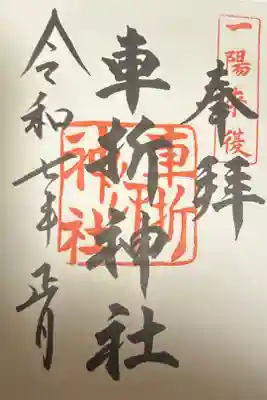 一陽来復
奉拝
車折神社
車折神社
令和七年 正月